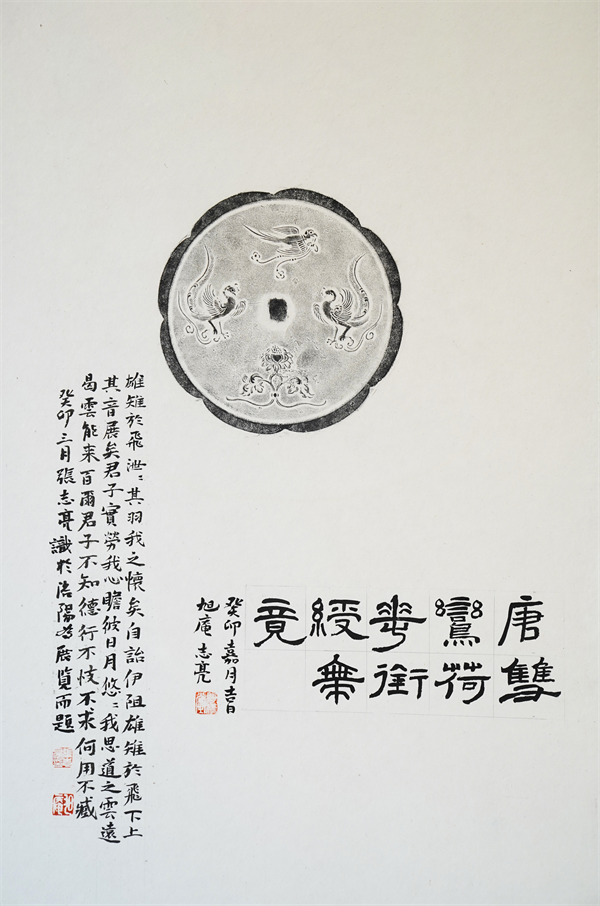 唐雙
鸞荷
華銜
綬無
竟
癸卯嘉月吉日
旭庵志亮
雄雉於飛泄〻其羽我之懷矣自詒伊阻雄雉於飛下上
其音展矣君子實勞我心瞻彼日月悠〻我思道之雲遠
曷雲能来百爾君子不知德行不忮不求何用不臧
癸卯三月張志亮識於洛陽為展覽而題